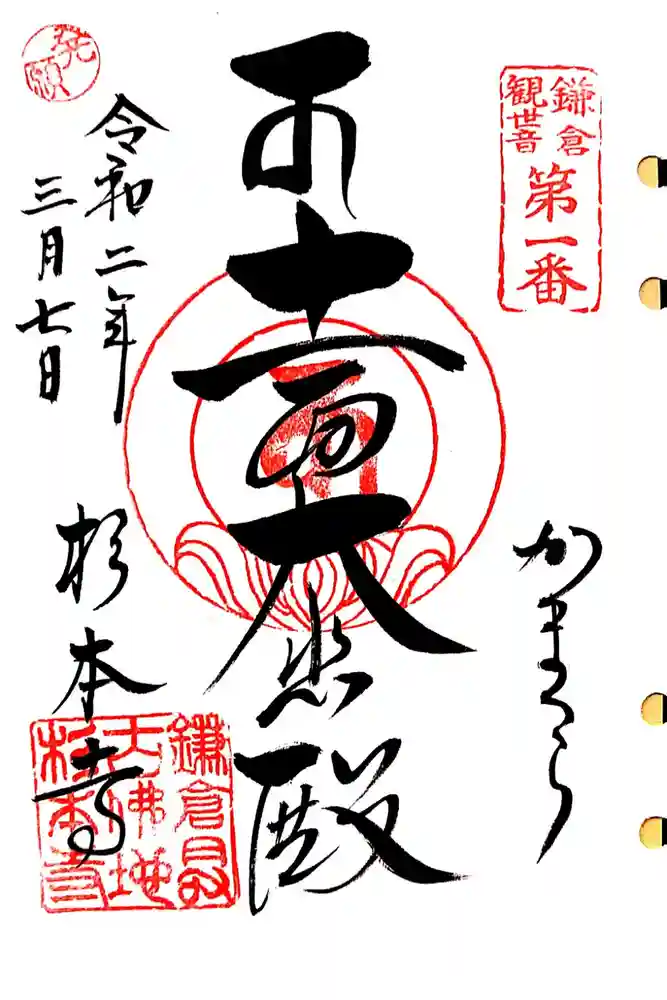 鎌倉
観世音
第一番
かまくら
十一面大悲殿
発願
令和二年
三月七日
杉本寺
鎌倉最
佛地
杉本寺